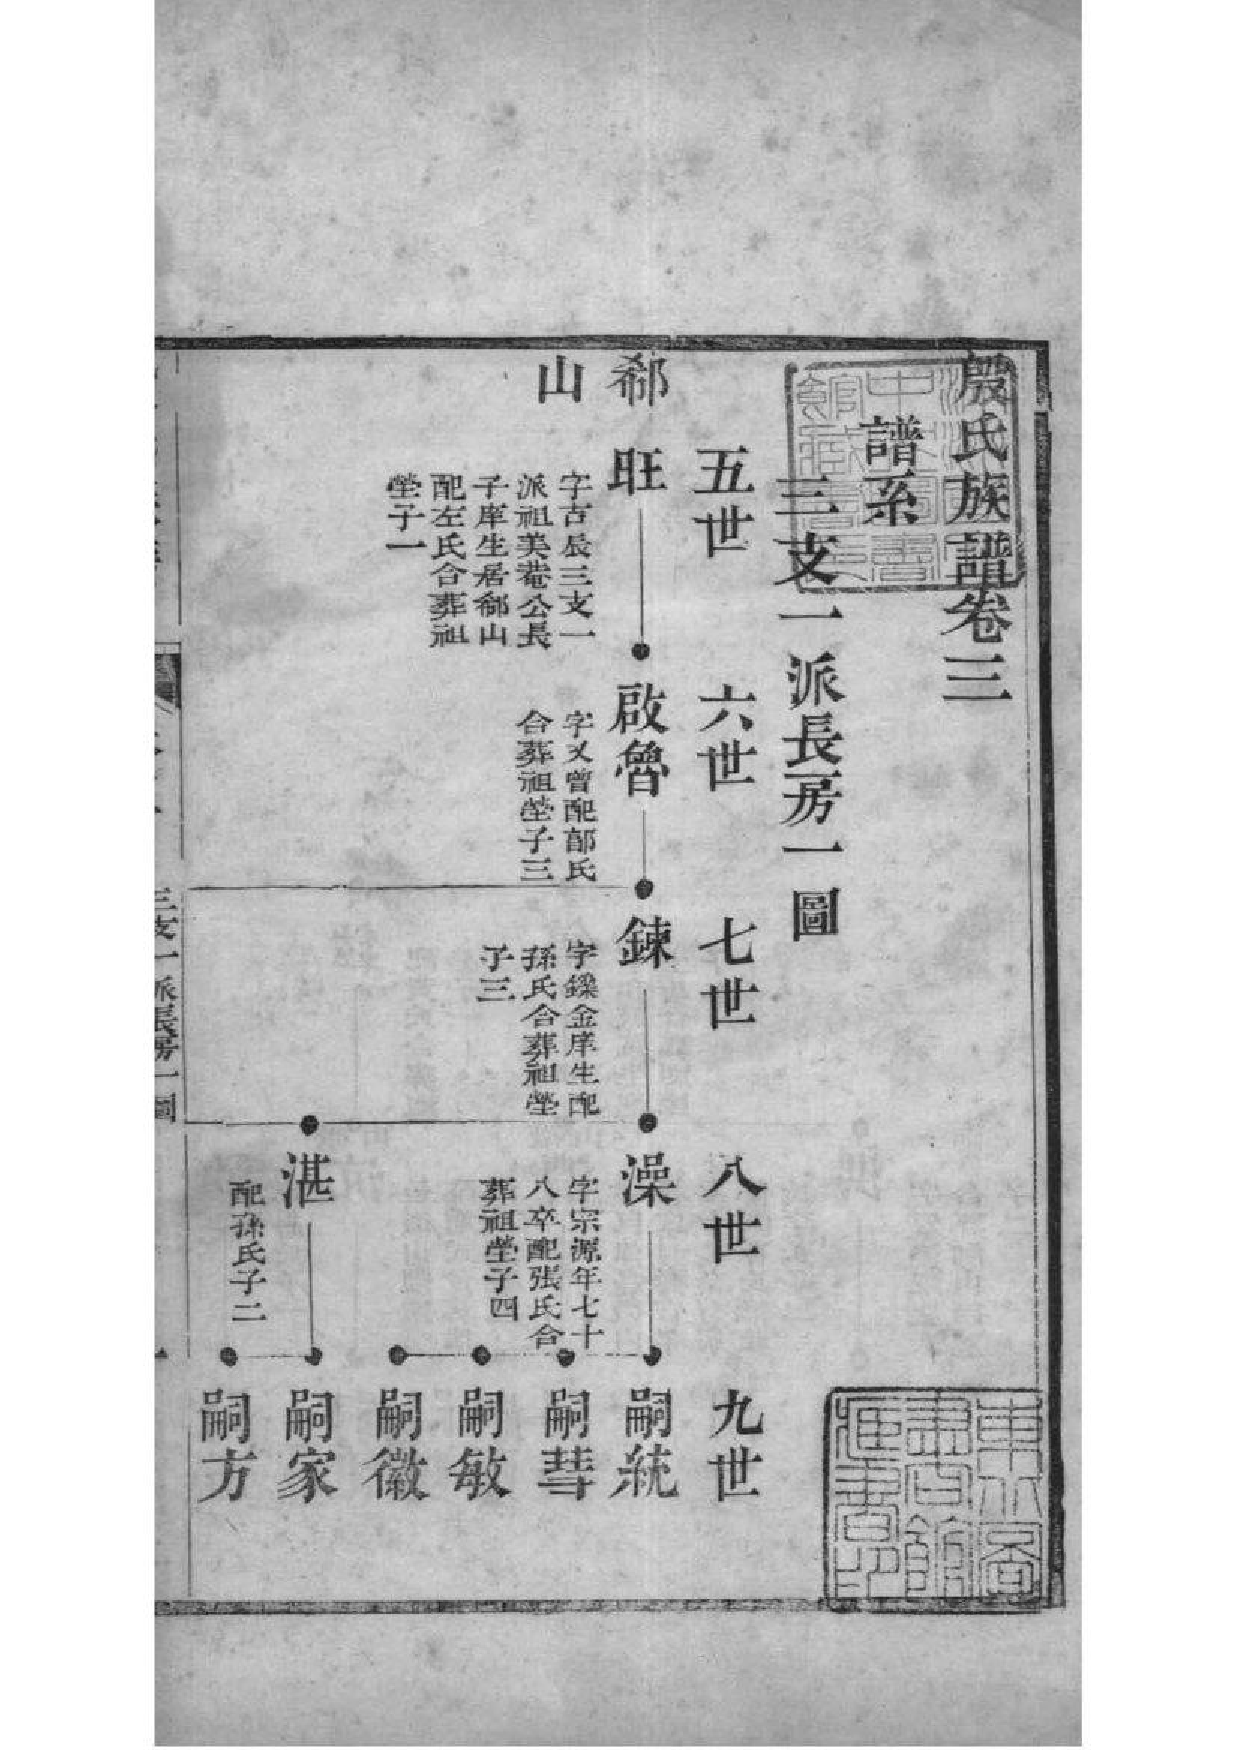 殷氏族譜卷三
譜系
三支一派長房一圖
五世
六世
七世
八世
九世
郗山
旺
字古辰三支一
派祖美菴公長
子庠生居郗山
配左氏合葬祖
塋子一
啟魯
字又曾配郜氏
合葬祖塋子三
鍊
字鑠金庠生配
孫氏合葬祖塋
子三
澡
字宗源年七十
八卒配張氏合
葬祖塋子四
湛
配孫氏子二
嗣統
嗣彗
嗣敏
嗣徽
嗣家
嗣方
三支一派長房一圖
一